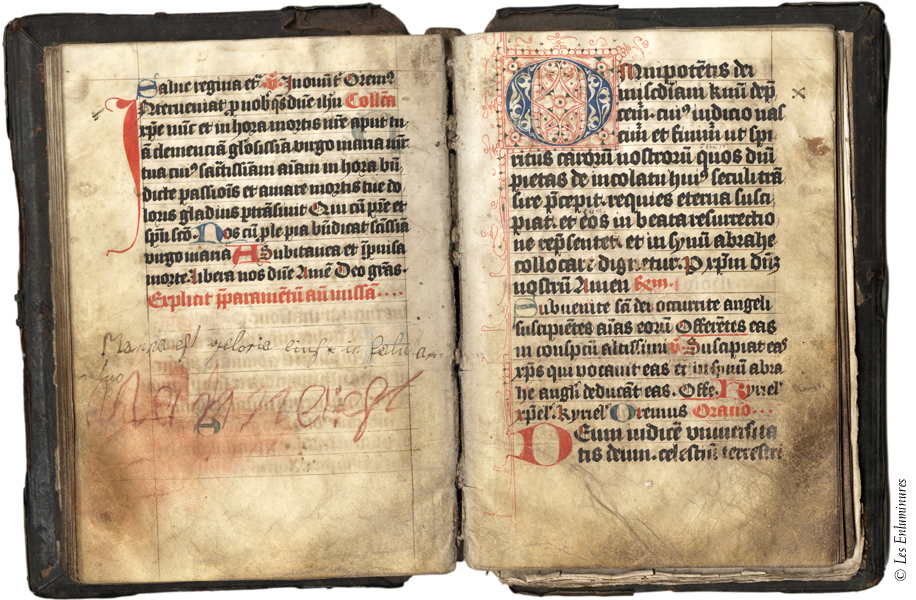 Salue regina etc̄ v̄ Jnouiut̄ Oremꝰ
Jnterueniat p̱ nob̄ qs̄ dn̄e ih̄u Collc̄a
xp̄e nūc et in hora mortis nr̄e aput tu
ā clemenciā glo͞siss͞ia virgo maria m̄r
tua cuiꝰ sac̄tiss͞iam aīam in hora bn̄
dicte passiōis et amare mortis tue do
loris gladius ptr̄ansiuit Qui cū pr̄e et
sp̄u sc̄o. Nos cū ple pia bn̄dicat
virgo maria A Subitanea et īp̄uisa
morte libera nos dn̄e Amē Deo gr̄as.
Explicit p̄paramētū an̄ missā....
gloria eius in
Omnipotētis dei
mis̄cdiam
cuiꝰ iudicio nas
cim̄ et finim̄ ut spi
ritus caroꝝ nostroꝝ quos diū
pietas de incolatu huiꝰ seculi trā
sire p̄cepit. requies eterna susci
piat. et eos in beata resurrectio
ne rep̄sentet. et in synū abrahe
collocare dignetur. P xp̄m dn̄m
nostrū Amen
Subuenite sc̄i dei occurite angeli
suscipiētes aīas eoꝝ Offerētes eas
in conspectu altissimi v̄ Suscipiat eas
xp̄s qui vocauit eas et in synū abra
he angli deducāt eas. Offe. Kyriel'
xp̄el'. Kyriel' Oremus Oracio...
Deum iudicē vniuersita
tis deum. celestiū terrestri
© Les Enluminures